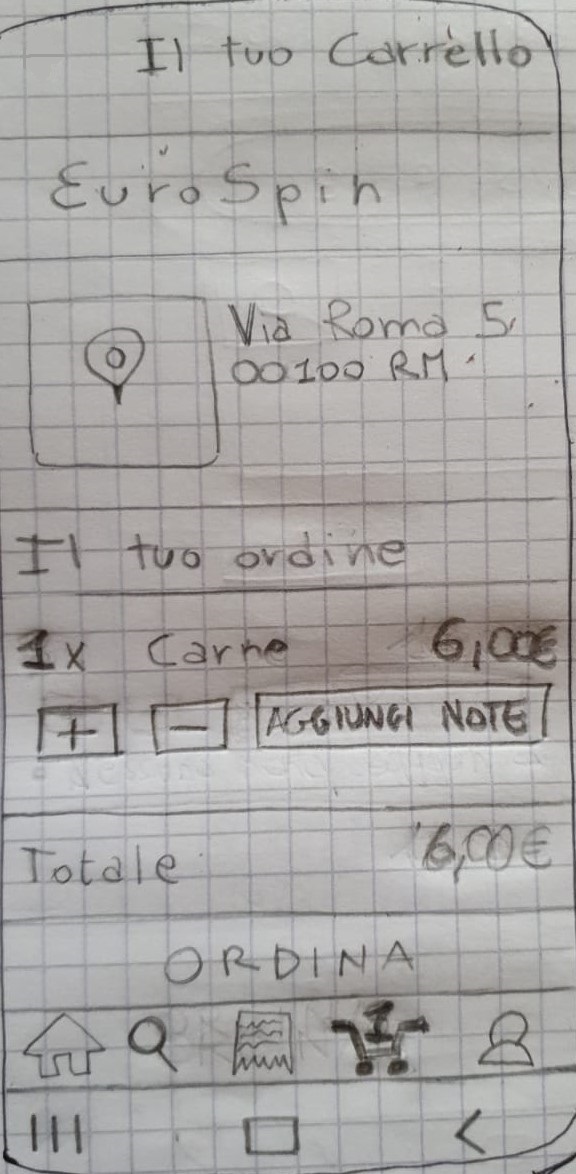 Il tuo Carrello
EuroSpin
Via Roma 5,
00100 RM.
Il tuo ordine
1x Carne 6,00€
+ - AGGIUNGI NOTE
Totale 6,00€
ORDINA
1